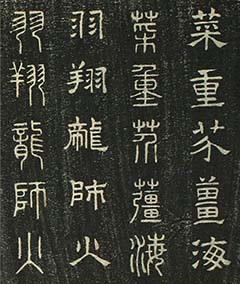 菜重芥薑海
菜重芥薑海
羽翔龍師火
羽翔龍師火